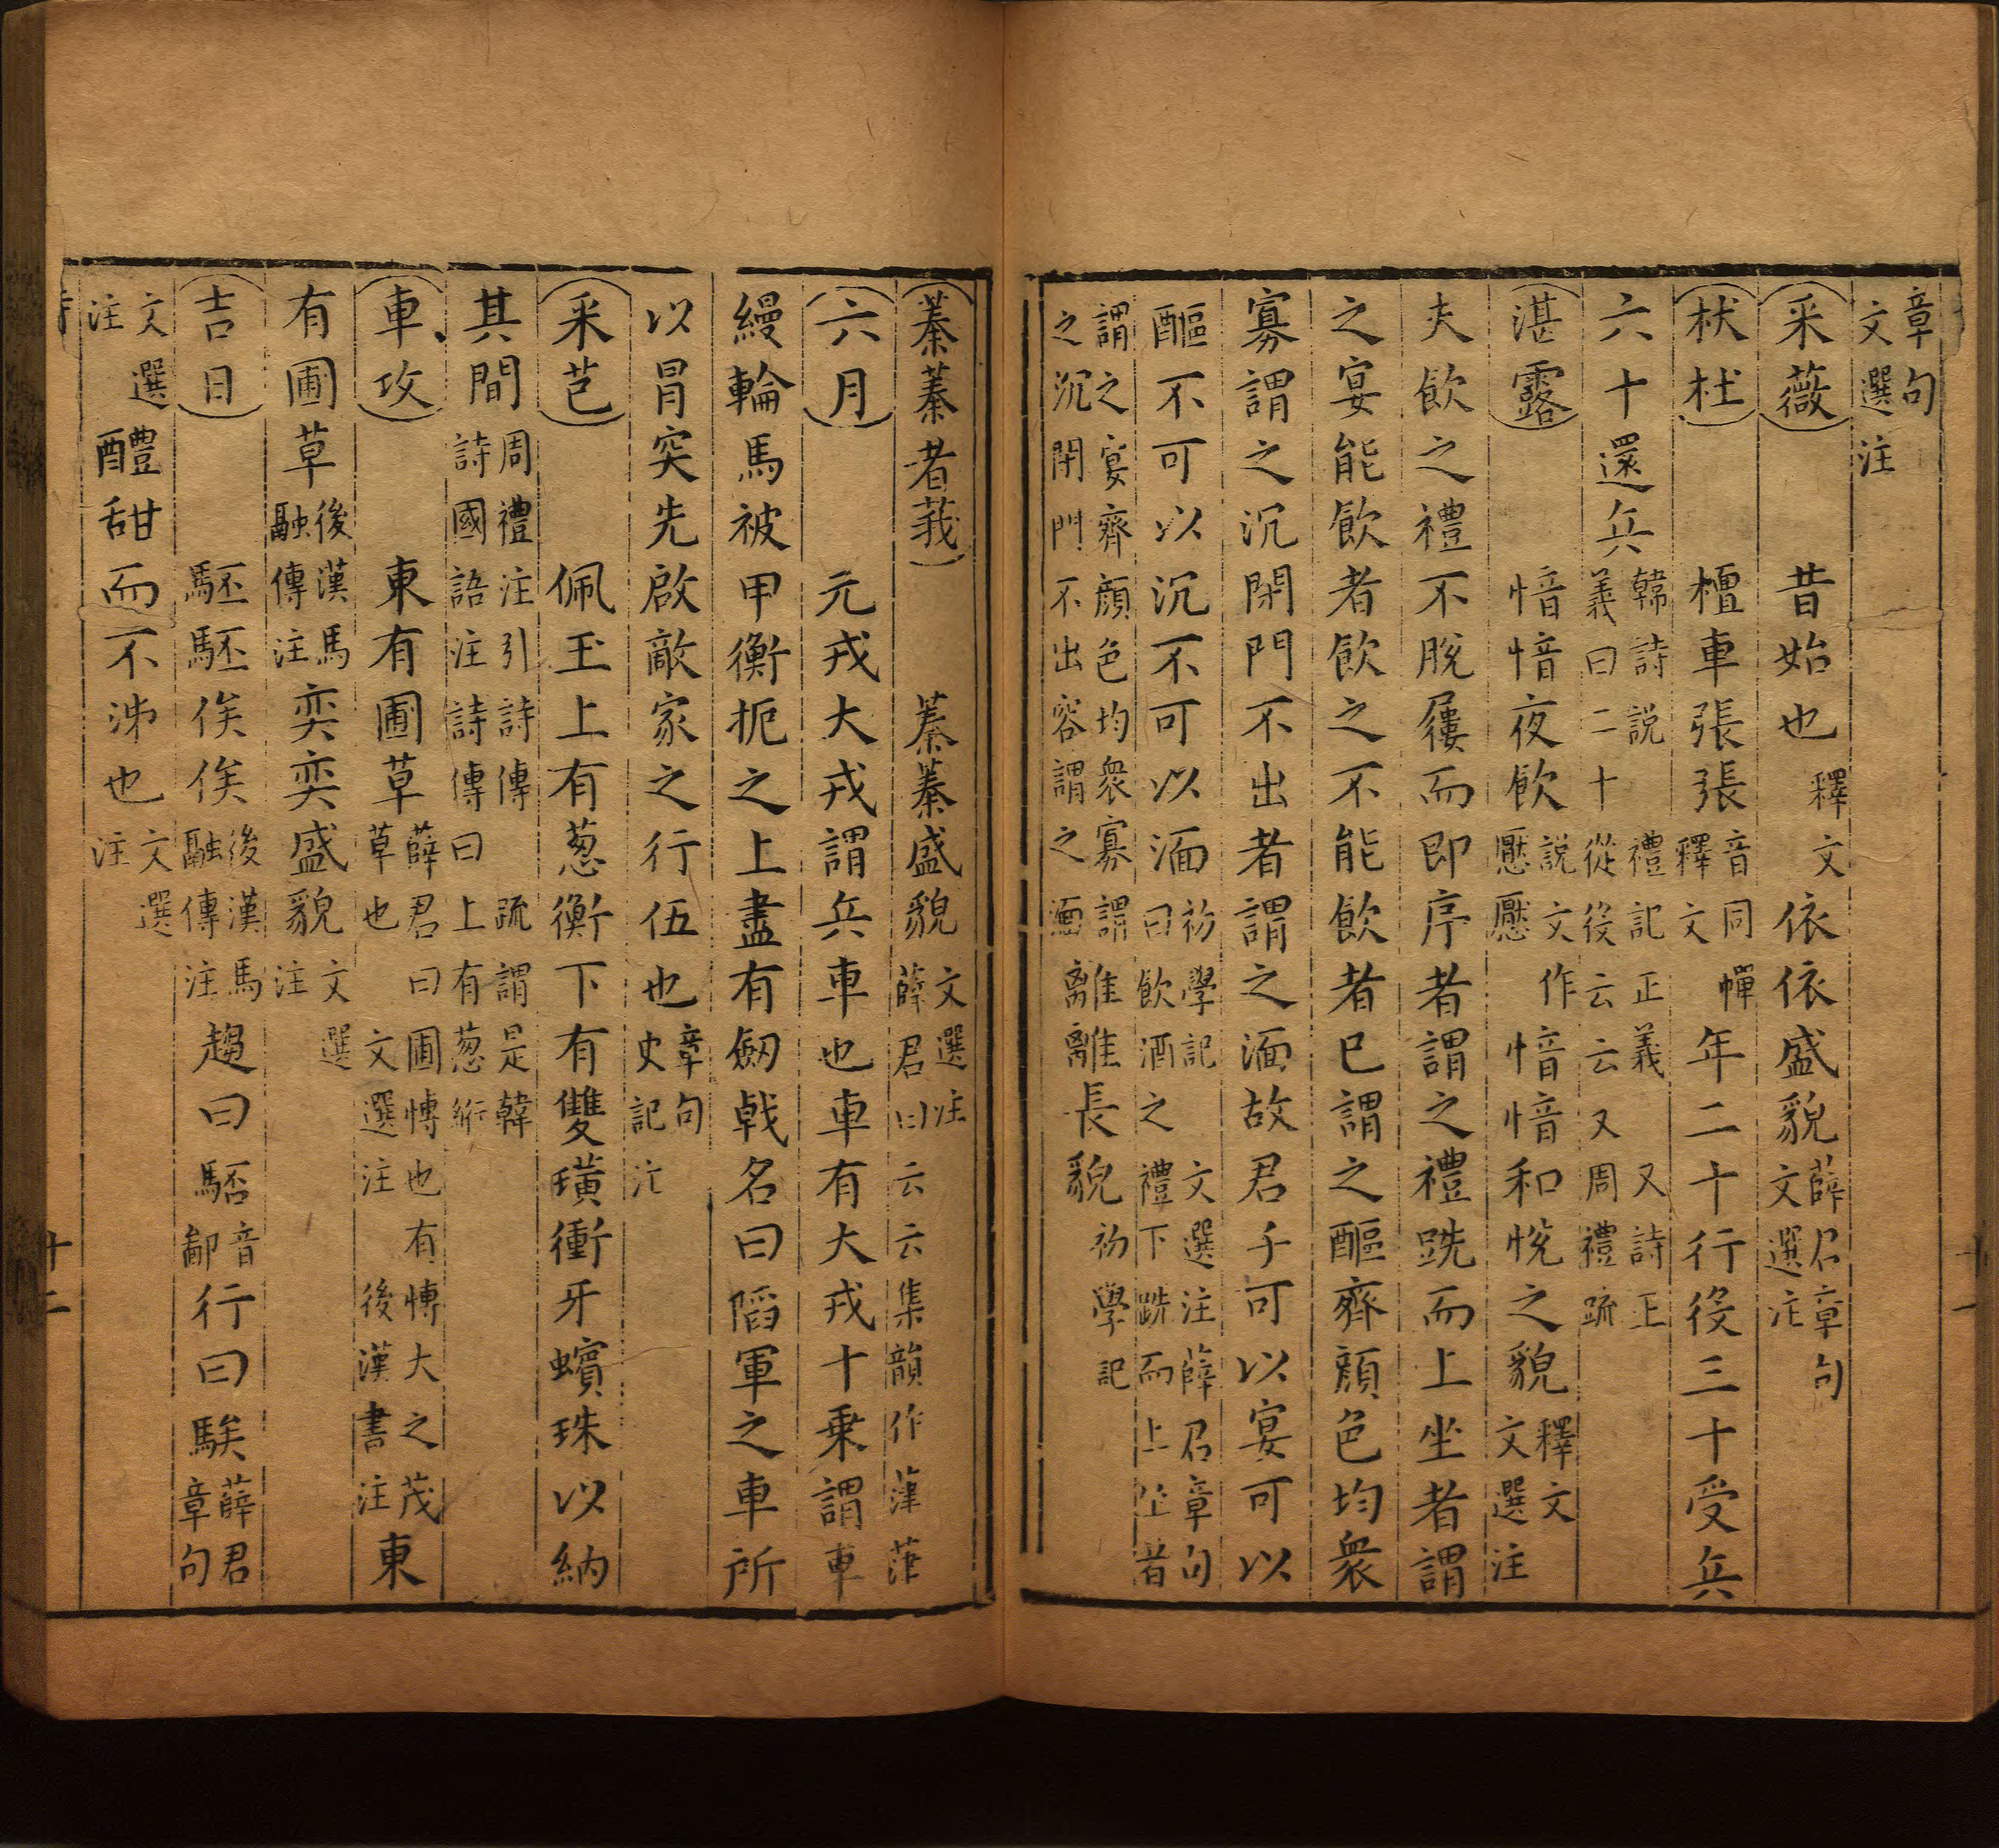 章句文選注
采薇　昔始也釋文依依盛貌薛君章句文選注
杕杜　檀車張張音同釋文幝年二十行役三十受兵
六十還兵韓詩說二十從役云云禮記正義又詩正義曰又周禮疏
湛露　愔愔夜飲說文作懕懕愔愔和悅之貌釋文文選注
夫飲之禮不脫屨而即序者謂之禮跣而上坐者謂
之宴能飲者飲之不能飲者已謂之醧齊顏色均衆
寡謂之沉閉門不出者謂之湎故君子可以宴可以
醧不可以沉不可以湎初學記曰飲酒之禮下跣而上坐者文選注薛君章句
謂之宴齊顏色均衆寡謂之沉閉門不出容謂之湎離離長貌初學記
蓁蓁者莪　蓁蓁盛貌文選注薛君曰云云集韻作葏葏
六月　元戎大戎謂兵車也車有大戎十乗謂車
縵輪馬被甲衡扼之上盡有劒戟名曰陷軍之車所
以冒突先啟敵家之行伍也章句史記注
采芑　佩玉上有蔥衡下有雙璜衝牙蠙珠以納
其間周禮注引詩傳疏謂是韓詩國語注詩傳曰上有蔥珩
車攻　東有圃草薛君曰圃博也有博大之茂草也文選注後漢書注東
有圃草後漢馬融傳注奕奕盛貌文選注
吉日　駓駓俟俟後漢馬融傳注趨曰駓音鄙行曰騃薛君章句
文選注醴甜而不泲也文選注
十二